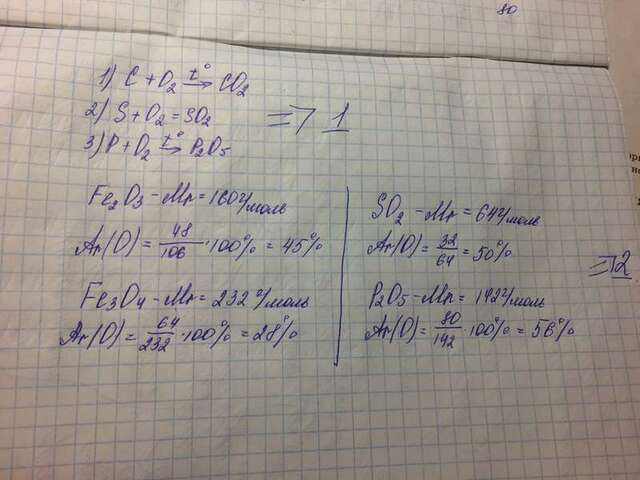 1) C + O₂ t°→ CO₂
2) S + O₂ = SO₂
3) P + O₂ t°→ P₂O₅
=7 1
Fe₂O₃ - Mr = 160 г/моль
Ar(O) = 48/106 · 100% = 45%
Fe₃O₄ - Mr = 232 г/моль
Ar(O) = 64/232 · 100% = 28%
SO₂ - Mr = 64 г/моль
Ar(O) = 32/64 = 50%
P₂O₅ - Mr = 142 г/моль
Ar(O) = 80/142 · 100% = 56%
=72
80